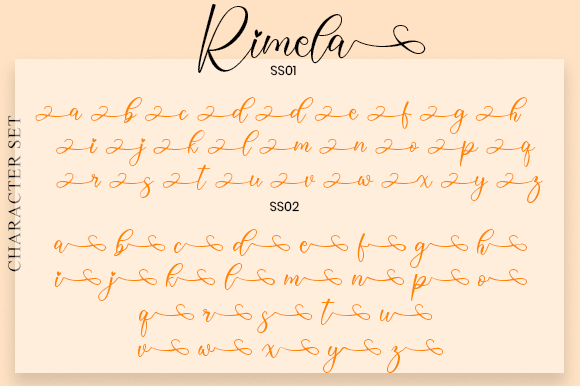 Rimela
SS01
a b c d d e f g h
i j k l m n o p q
r s t u v w x y z
SS02
a b c d e f g h
i j k l m n p o
q r s t u
v w x y z
CHARACTER SET